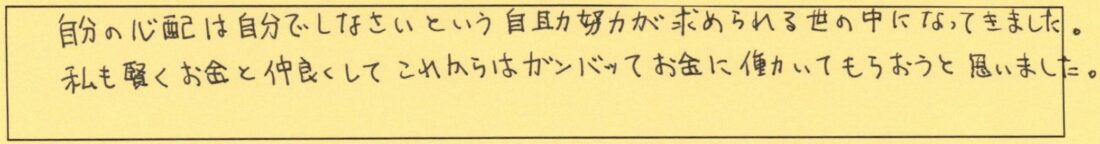 自分の心配は自分でしなさいという自助努力が求められる世の中になってきました。
私も賢くお金と仲良くしてこれからはガンバッてお金に働いてもらおうと思いました。